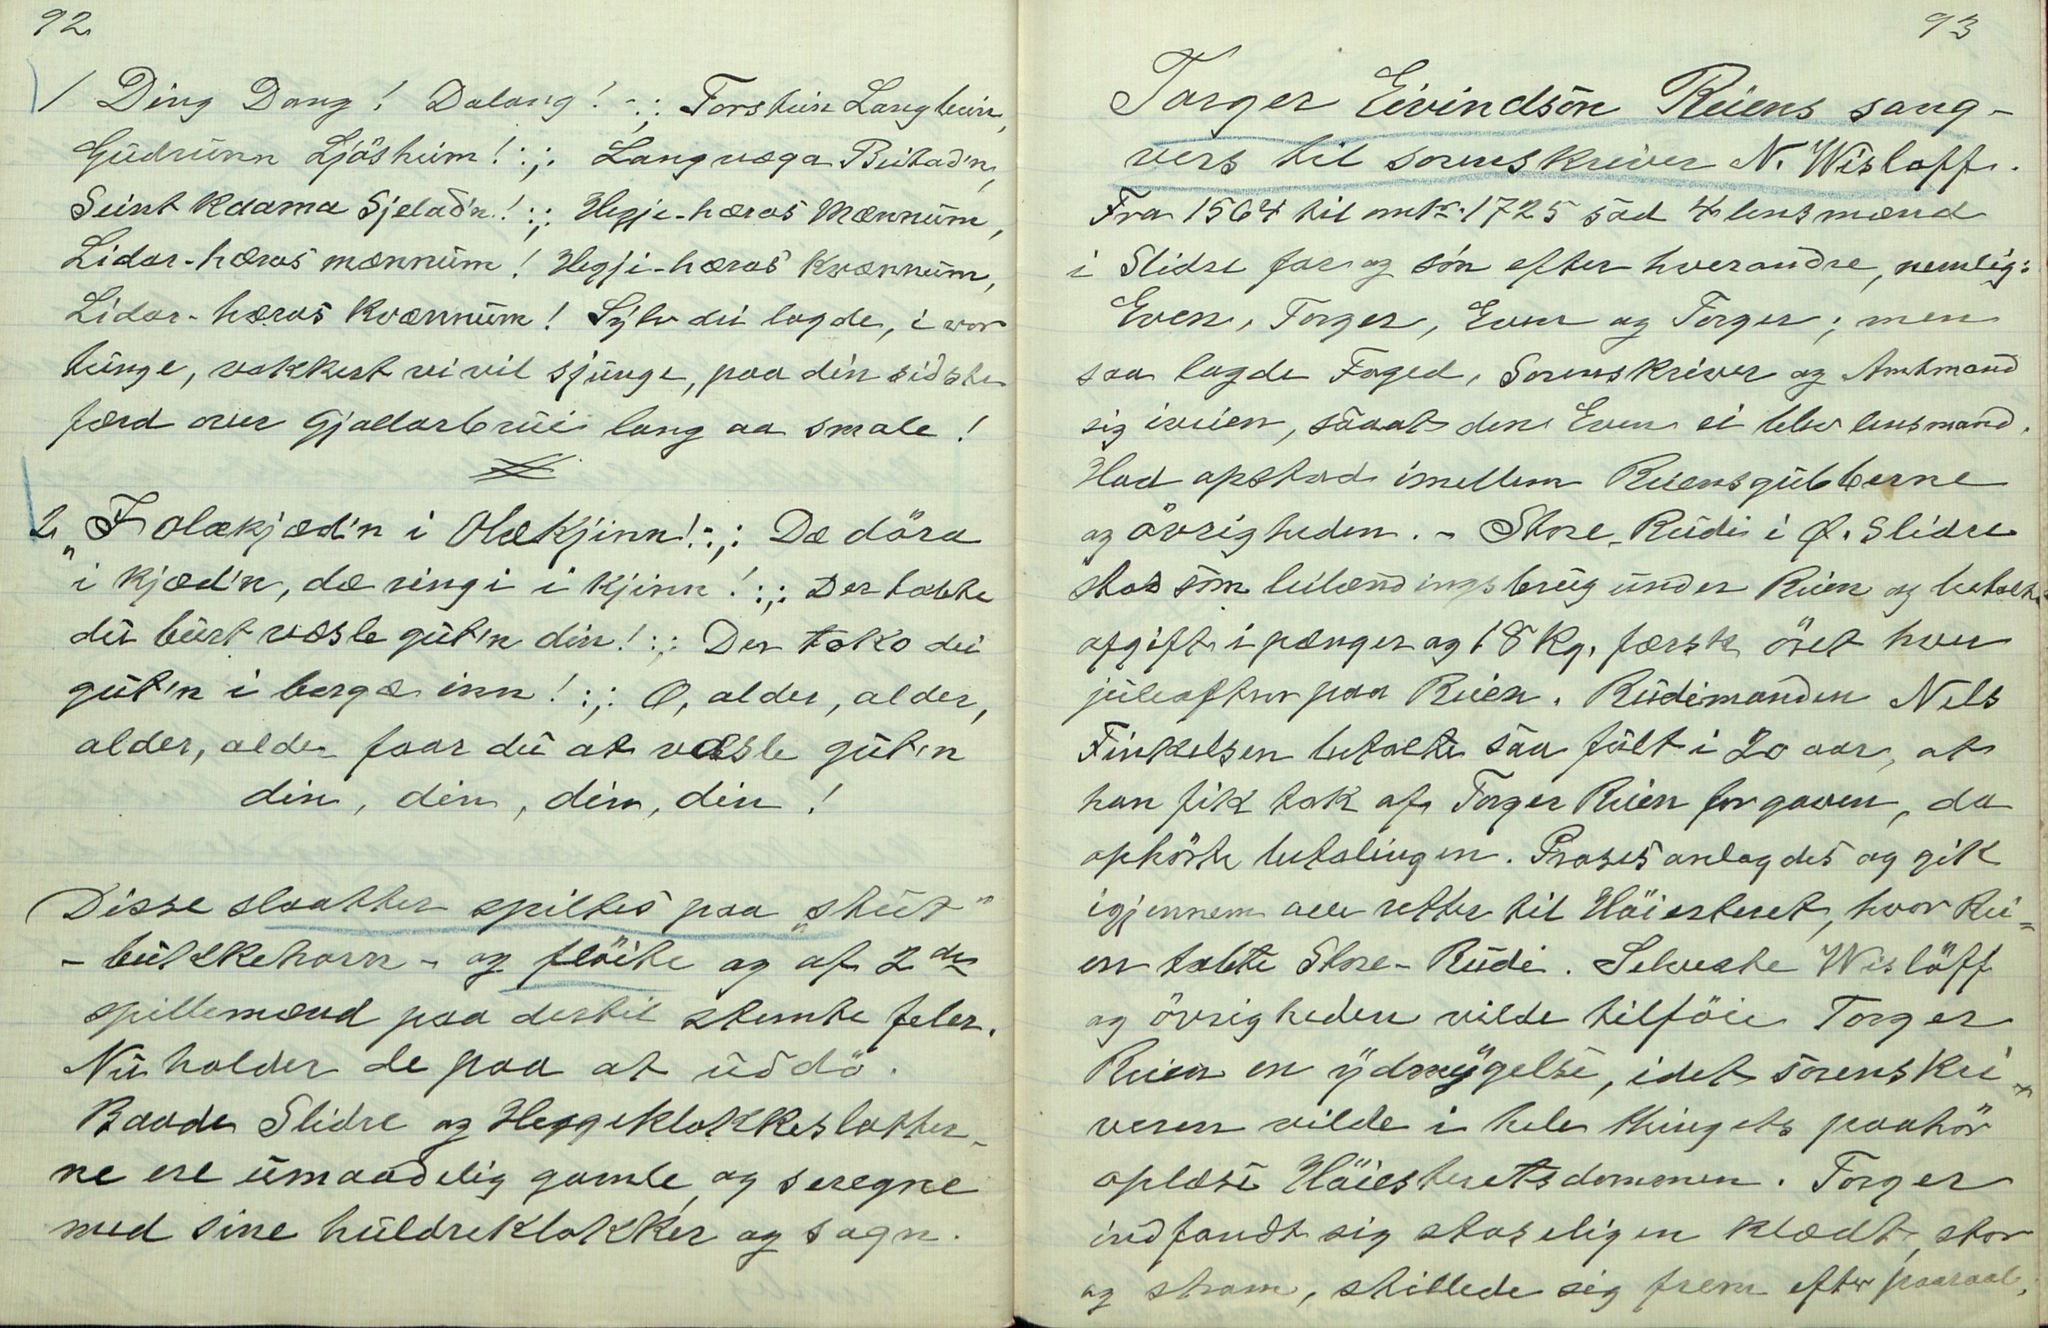 92
1 Ding Dang! Dalang! :,: Torstein Langbein,
Gudrunn Ljösheim! :,: Langvæga Beitad'n,
Seint kaama Sjelad'n! :,: Hegje-hæras Mænnum,
Lidar-hæras mænnum! Hegji-hæras kvænnum,
Lidar-hæras kvænnum! Sylv dei lagde, i vor
tunge, vakkert vi vil sjunge, paa din sidste
færd over Gjallarbrui lang aa smale!
2. "Folækjæd'n i Olækjinn! :,: Dæ döra
i kjæd'n, dæ ringi i kjinn! :,: Der tabte
du burt væsle gut'n din! :,: Der toko dei
gut'n i bergæ inn! :,: O, alder, alder,
alder, alder faar du at væsle gut'n
din, din, din, din!
Disse slaatter spiltes paa "stut"
- bukkehorn - og flöite og af 2de
spillemænd paa dertil stemte feler.
Nu holder de paa at uddö.
Baade Slidre og Heggeklokkeslatter-
ne ere umaadelig gamle, og seregne
med sine huldreklokker og sagn.
93
Torger Eivindsön Reiens sang-
vers til sorenskriver N. Wisloff.
Fra 1564 til omkr. 1725 sad 4 lensmænd
i Slidre far og sön efter hverandre, nemlig:
Even, Torger, Even og Torger; men
saa lagde Foged, Sorenskriver og Amtmand
sig iveien, saaat den Even ei blev lensmand.
Had opstod imellem Reiensgubberne
og övrigheden. - Store-Rudi i Ø. Slidre
stod som leilændingsbrug under Reien og betalte
afgift i pænger og 18 Kg. færsk öret hver
juleaften paa Reien. Rudimanden Nels
Finkelsen betalte saa fult i 20 aar, at
han fik tak af Torger Reien for gaven, da
ophörte betalingen. Proses anlagdes og gik
igjennem alle retter til Höiesteret, hvor Rei=
en tabte Store-Rudi. Selveste Wislöff
og övrigheden vilde tilföie Torger
Reien en ydmygelse, idet sorenskri-
veren vilde i hele thingets paahör
oplæse Höiesteretsdommen. Torger
indfandt sig staseligen klædt, stor
og stram, stillede sig frem efter paaraab,